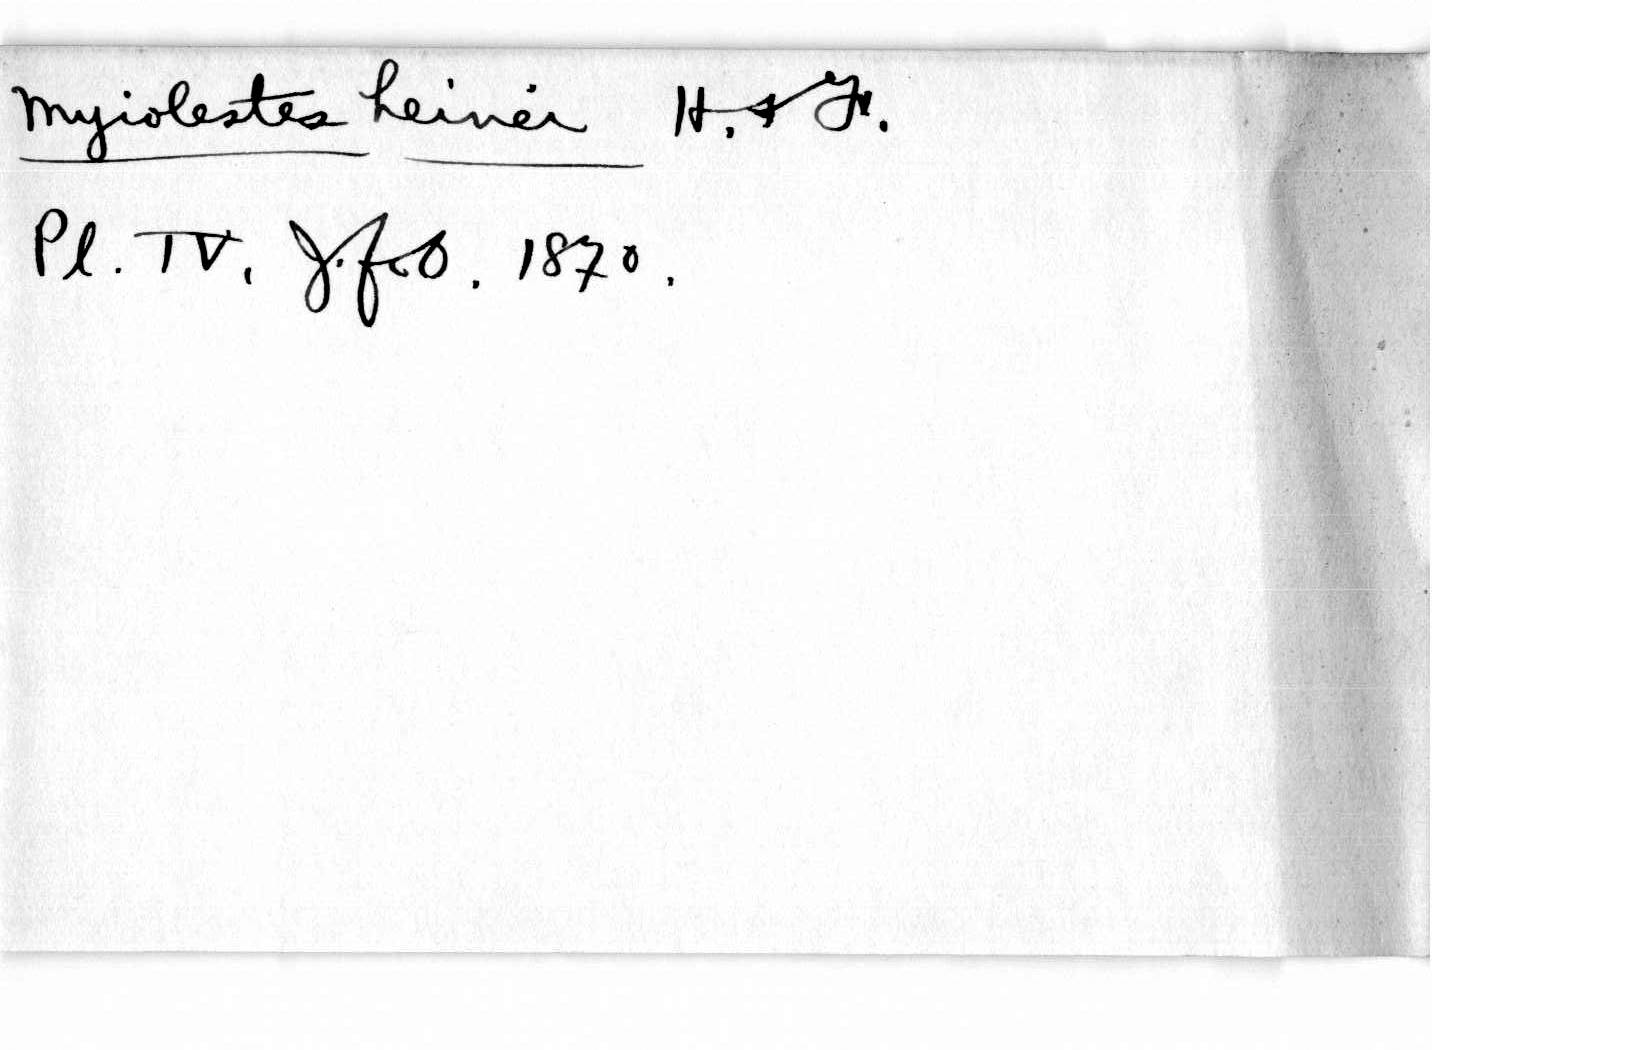 Myiolestes heinei H. & F.
Pl. IV, J. f. O. 1870.